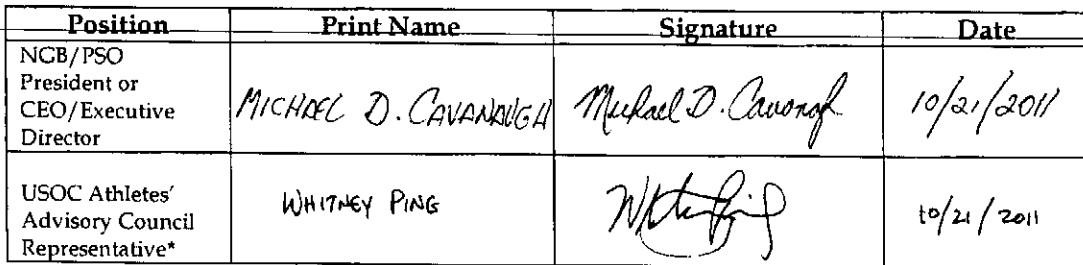 Position Print Name Signature Date
NGB/PSO
President or
CEO/Executive
Director
MICHAEL D. CAVANAUGH Michael D. Cavanagh 10/21/2011
USOC Athletes'
Advisory Council
Representative*
WHITNEY PING Whitney Ping 10/21/2011